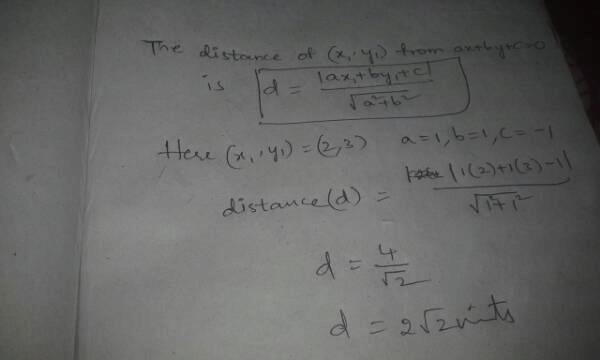 The distance of (x₁, y₁) from ax+by+c=0
is d = |ax₁+by₁+c| / √a²+b²
Here (x₁, y₁) = (2,3) a=1, b=1, c=-1
distance(d) = |1(2)+1(3)-1| / √1²+1²
d = 4/√2
d = 2√2 units